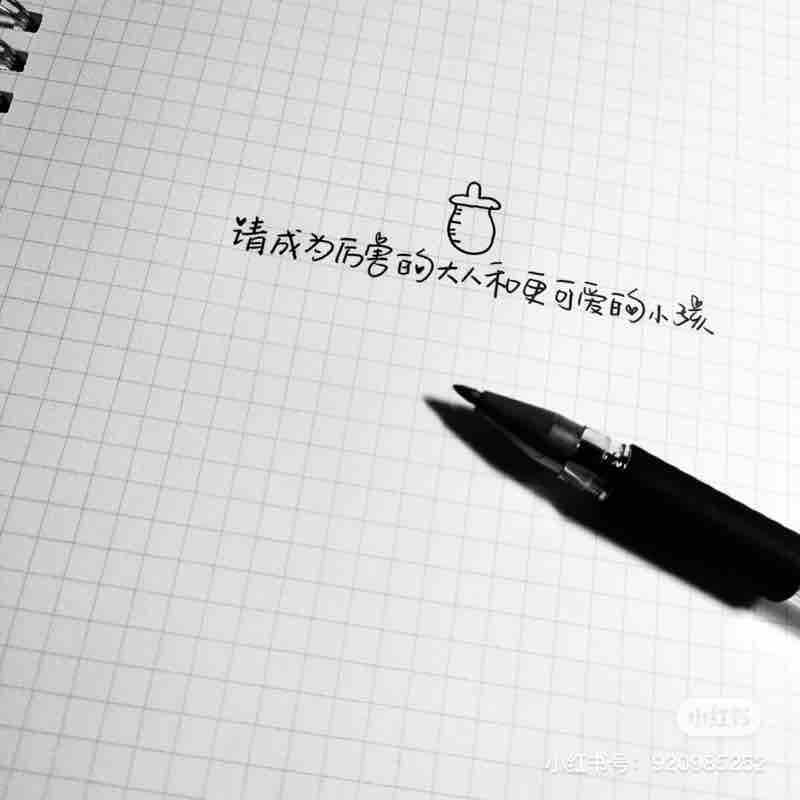 请成为厉害的大人和更可爱的小孩
小红书
小红书号：920985252